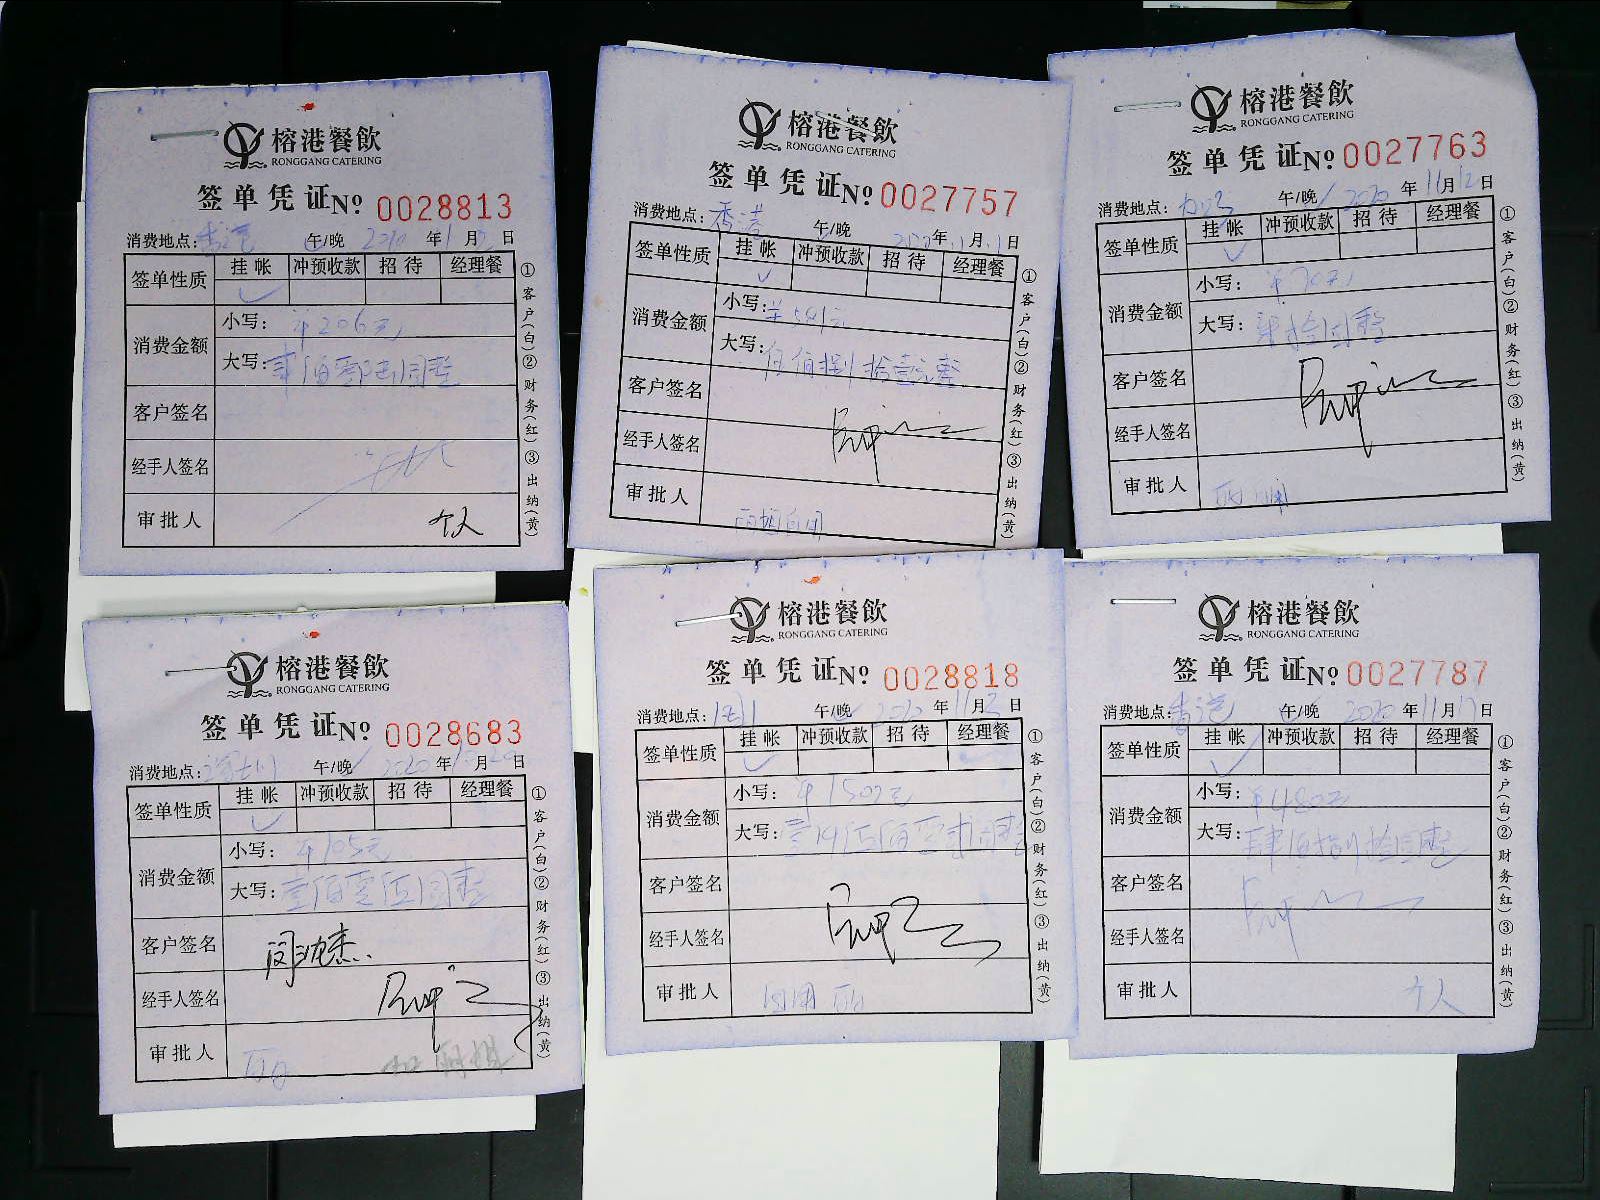 榕港餐飲
RONGGANG CATERING
签单凭证№ 0028813
消费地点：香港 午/晚 2020年11月2日
签单性质 挂帐 冲预收款 招待 经理餐
消费金额 小写：¥206元
大写：贰佰零陆圆整
客户签名
经手人签名
审批人 个人
①客户(白)②财务(红)③出纳(黄)
榕港餐飲
RONGGANG CATERING
签单凭证№ 0027757
消费地点：香港 午/晚 2020年11月1日
签单性质 挂帐 冲预收款 招待 经理餐
消费金额 小写：¥581元
大写：伍佰捌拾壹元整
客户签名
经手人签名
审批人
①客户(白)②财务(红)③出纳(黄)
榕港餐飲
RONGGANG CATERING
签单凭证№ 0027763
消费地点： 午/晚 2020年11月12日
签单性质 挂帐 冲预收款 招待 经理餐
消费金额 小写：
大写：
客户签名
经手人签名
审批人
①客户(白)②财务(红)③出纳(黄)
榕港餐飲
RONGGANG CATERING
签单凭证№ 0028683
消费地点： 午/晚 2020年 月 日
签单性质 挂帐 冲预收款 招待 经理餐
消费金额 小写：¥105元
大写：壹佰零伍圆整
客户签名
经手人签名
审批人
①客户(白)②财务(红)③出纳(黄)
榕港餐飲
RONGGANG CATERING
签单凭证№ 0028818
消费地点： 午/晚 2020年11月 日
签单性质 挂帐 冲预收款 招待 经理餐
消费金额 小写：¥1502元
大写：壹仟伍佰零贰元整
客户签名
经手人签名
审批人
①客户(白)②财务(红)③出纳(黄)
榕港餐飲
RONGGANG CATERING
签单凭证№ 0027787
消费地点：香港 午/晚 2020年11月17日
签单性质 挂帐 冲预收款 招待 经理餐
消费金额 小写：¥480元
大写：肆佰捌拾圆整
客户签名
经手人签名
审批人 个人
①客户(白)②财务(红)③出纳(黄)